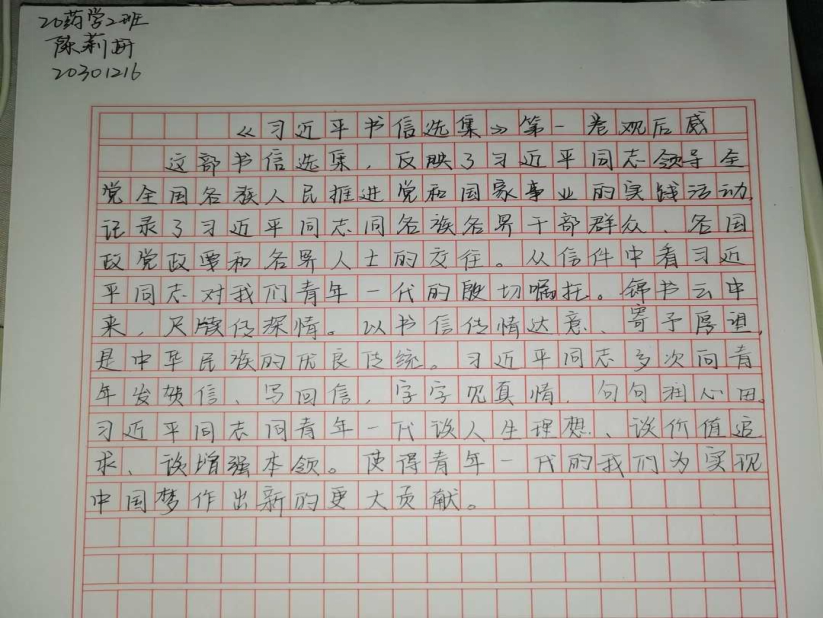 20药学2班
陈莉冉
20301216
《习近平书信选集》第一卷观后感
这部书信选集，反映了习近平同志领导全
党全国各族人民推进党和国家事业的实践活动，
记录了习近平同志同各族各界干部群众、各国
政党政要和各界人士的交往。从信件中看习近
平同志对我们青年一代的殷切嘱托。锦书云中
来，尺牍传深情。以书信传情达意、寄予厚谊，
是中华民族的优良传统。习近平同志多次向青
年发贺信、写回信，字字见真情，句句润心田。
习近平同志同青年一代谈人生理想、谈价值追
求、谈增强本领。使得青年一代的我们为实现
中国梦作出新的更大贡献。